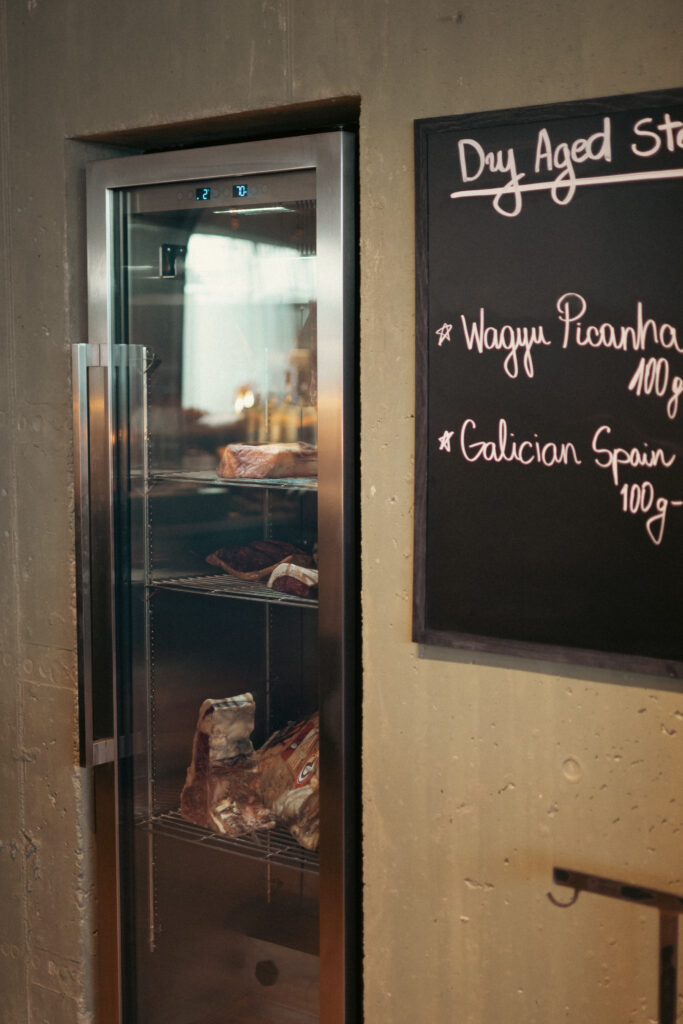 2 70
Dry Aged Ste
Wagyu Picanha
100g
Galician Spain
100g-